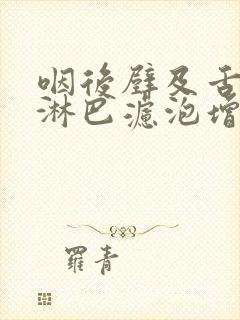 咽後壁及舌
淋巴濾泡增
羅青